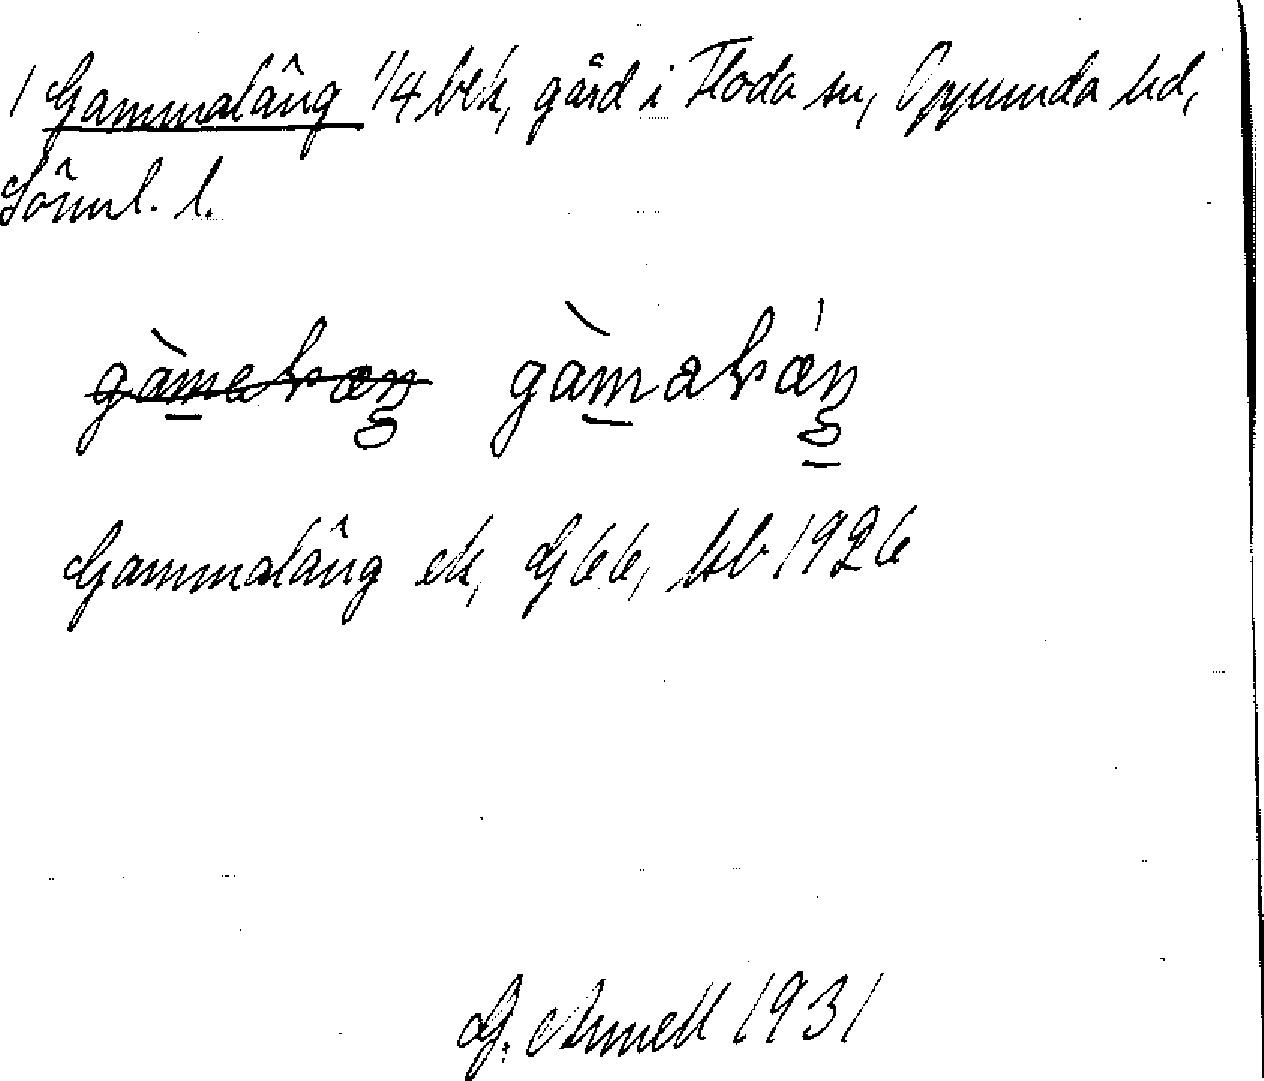 1 Gammaläng 1/4 blk, gård i Floda sn, Oppunda hd,
Söml. l.
gàmaläŋ
Gammaläng ek, G 66, hb 1926
G. Arnell 1931